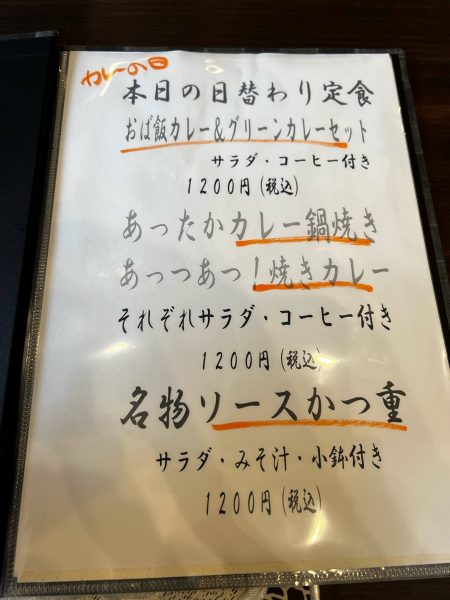 カレーの日
本日の日替わり定食
おば飯カレー&グリーンカレーセット
サラダ・コーヒー付き
1200円(税込)
あったかカレー鍋焼き
あっつあつ!焼きカレー
それぞれサラダ・コーヒー付き
1200円(税込)
名物ソースかつ重
サラダ・みそ汁・小鉢付き
1200円(税込)